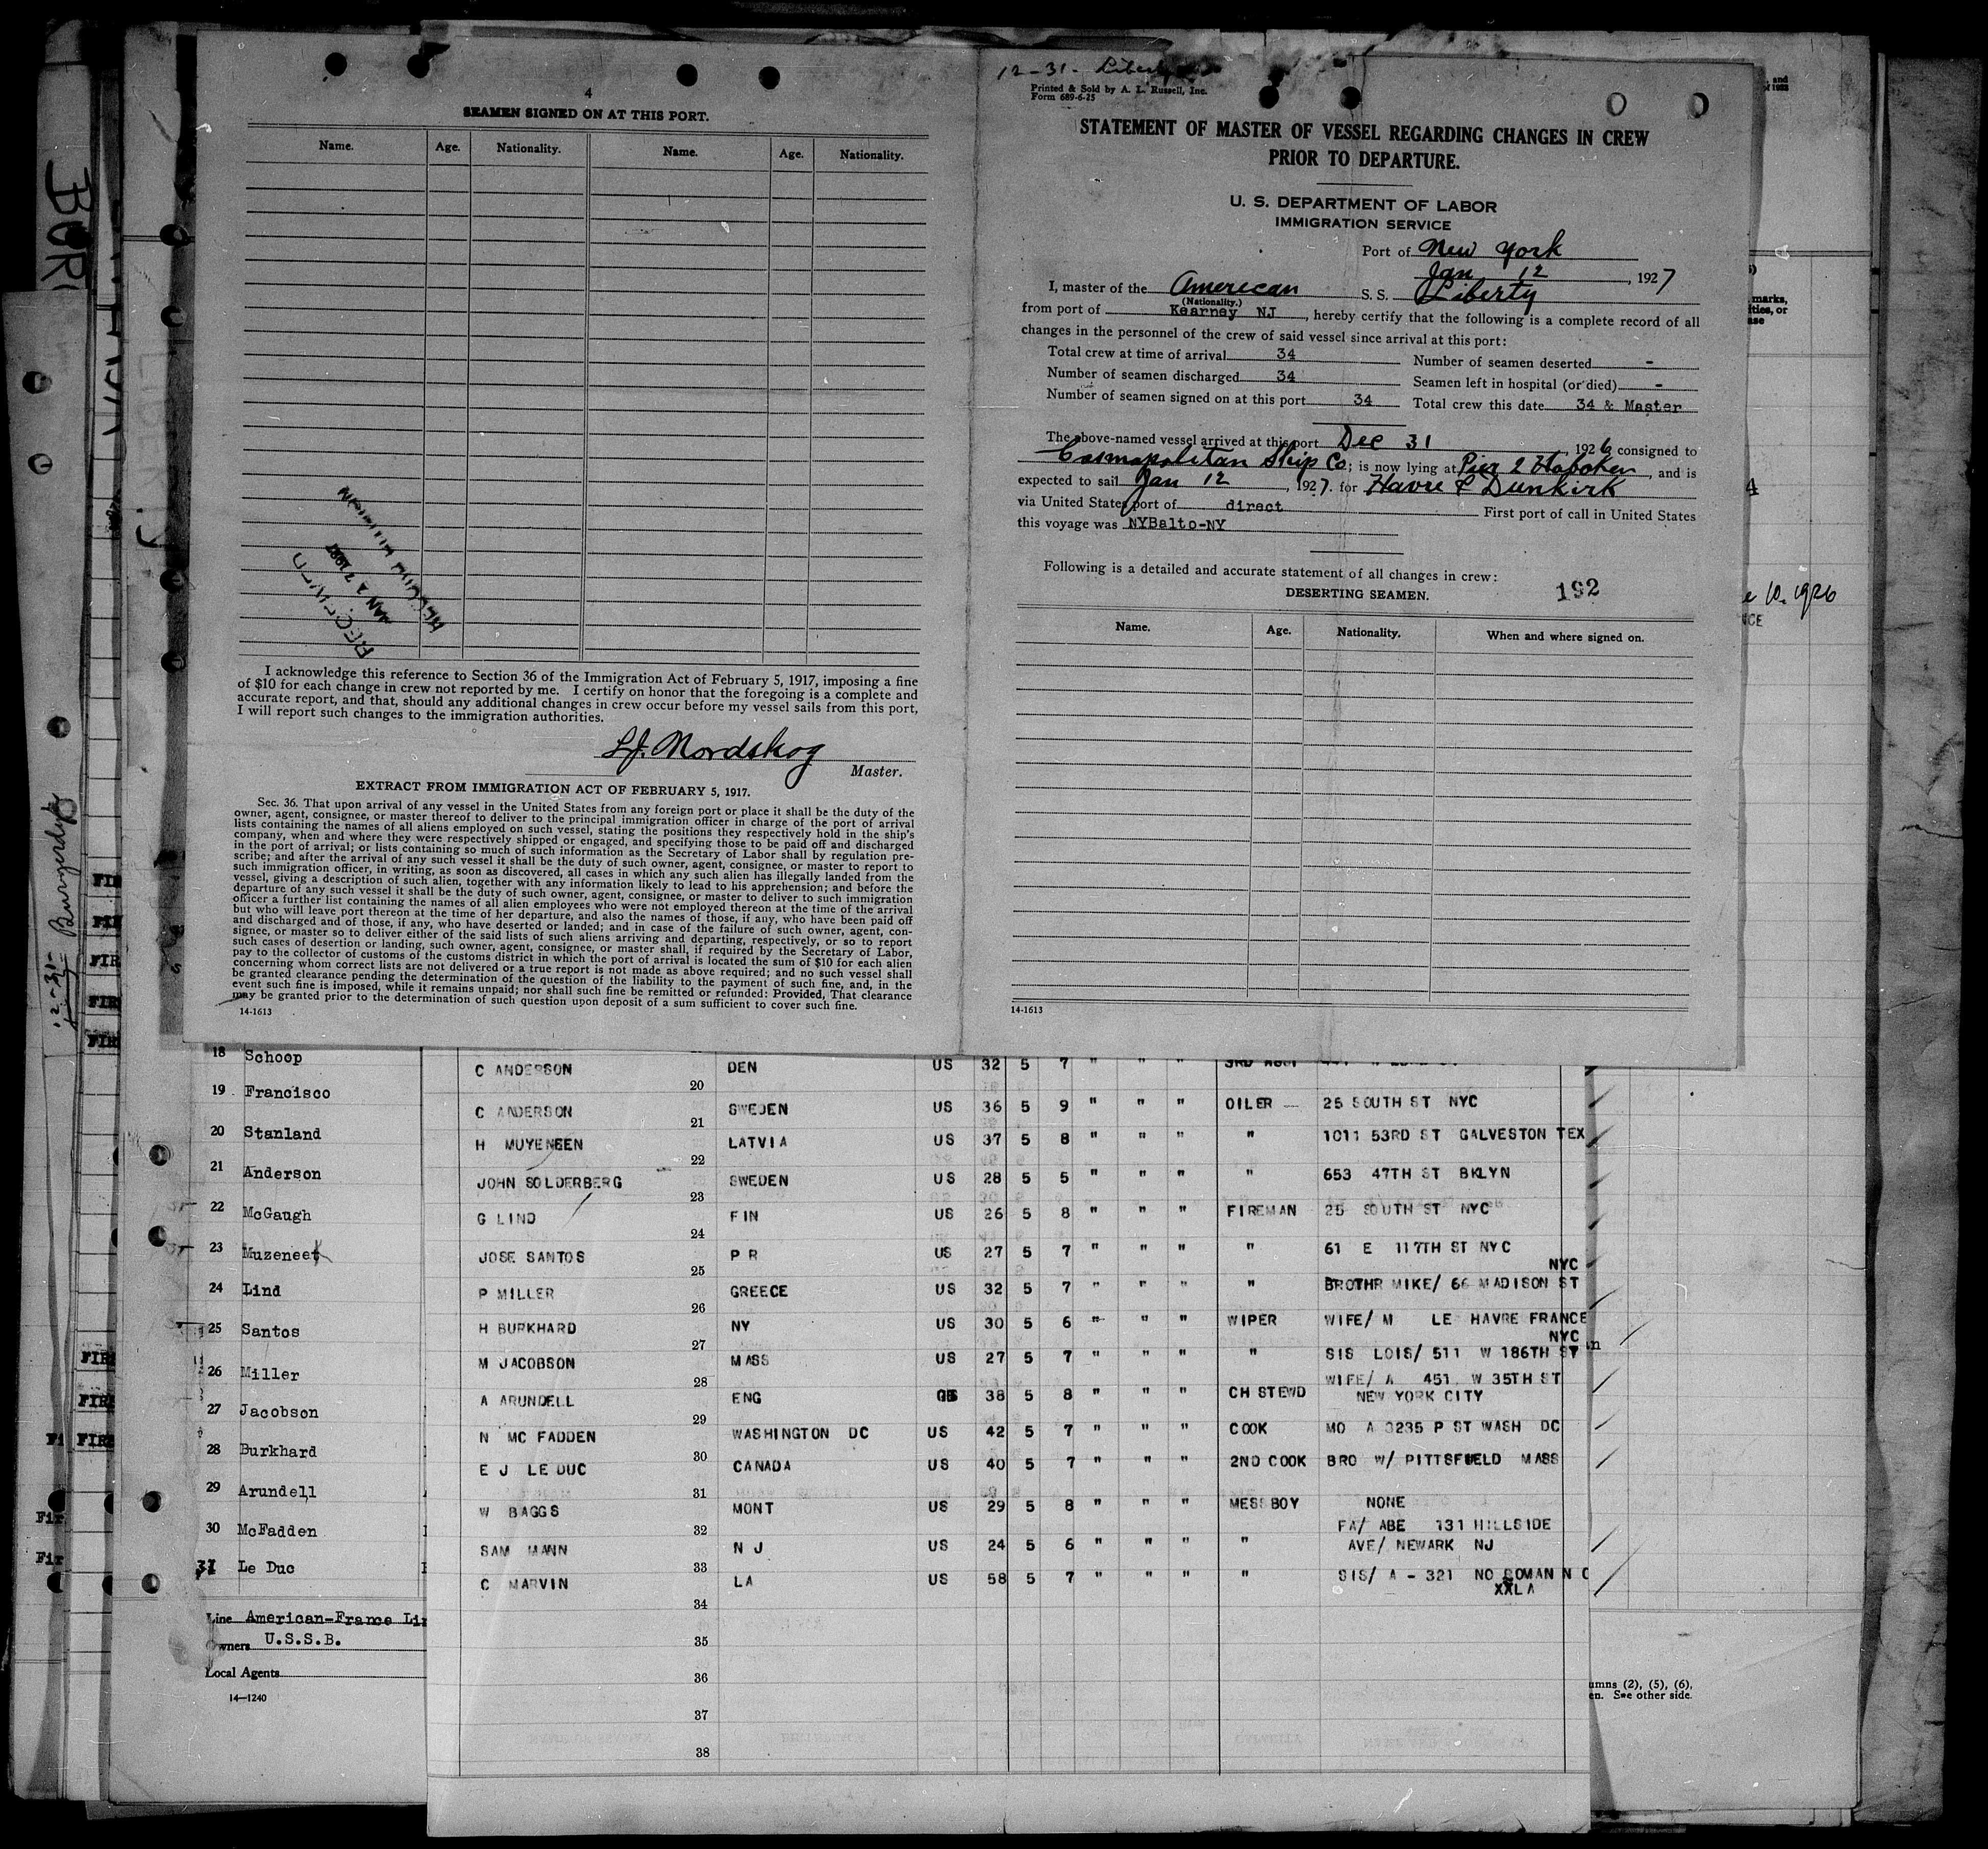 4
SEAMEN SIGNED ON AT THIS PORT.
Name. Age. Nationality. Name. Age. Nationality.
RECEIVED
JAN 1 2 1927
I acknowledge this reference to Section 36 of the Immigration Act of February 5, 1917, imposing a fine
of $10 for each change in crew not reported by me. I certify on honor that the foregoing is a complete and
accurate report, and that, should any additional changes in crew occur before my vessel sails from this port,
I will report such changes to the immigration authorities.
L.J. Nordskog
Master.
EXTRACT FROM IMMIGRATION ACT OF FEBRUARY 5, 1917.
Sec. 36. That upon arrival of any vessel in the United States from any foreign port or place it shall be the duty of the
owner, agent, consignee, or master thereof to deliver to the principal immigration officer in charge of the port of arrival
lists containing the names of all aliens employed on such vessel, stating the positions they respectively hold in the ship's
company, when and where they were respectively shipped or engaged, and specifying those to be paid off and discharged
in the port of arrival; or lists containing so much of such information as the Secretary of Labor shall by regulation pre-
scribe; and after the arrival of any such vessel it shall be the duty of such owner, agent, consignee, or master to report to
such immigration officer, in writing, as soon as discovered, all cases in which any such alien has illegally landed from the
vessel, giving a description of such alien, together with any information likely to lead to his apprehension; and before the
departure of any such vessel it shall be the duty of such owner, agent, consignee, or master to deliver to such immigration
officer a further list containing the names of all alien employees who were not employed thereon at the time of the arrival
but who will leave port thereon at the time of her departure, and also the names of those, if any, who have been paid off
and discharged and of those, if any, who have deserted or landed; and in case of the failure of such owner, agent, con-
signee, or master so to deliver either of the said lists of such aliens arriving and departing, respectively, or so to report
such cases of desertion or landing, such owner, agent, consignee, or master shall, if required by the Secretary of Labor,
pay to the collector of customs of the customs district in which the port of arrival is located the sum of $10 for each alien
concerning whom correct lists are not delivered or a true report is not made as above required; and no such vessel shall
be granted clearance pending the determination of the question of the liability to the payment of such fine, and, in the
event such fine is imposed, while it remains unpaid; nor shall such fine be remitted or refunded: Provided, That clearance
may be granted prior to the determination of such question upon deposit of a sum sufficient to cover such fine.
14-1613
12-31- Liberty
Printed & Sold by A. L. Russell, Inc.
Form 689-6-25
STATEMENT OF MASTER OF VESSEL REGARDING CHANGES IN CREW
PRIOR TO DEPARTURE.
U. S. DEPARTMENT OF LABOR
IMMIGRATION SERVICE
Port of New York
Jan 12, 1927
I, master of the American S. S. Liberty
(Nationality.)
from port of Kearney NJ, hereby certify that the following is a complete record of all
changes in the personnel of the crew of said vessel since arrival at this port:
Total crew at time of arrival 34 Number of seamen deserted -
Number of seamen discharged 34 Seamen left in hospital (or died) -
Number of seamen signed on at this port 34 Total crew this date 34 & Master
The above-named vessel arrived at this port Dec 31, 1926 consigned to
Cosmopolitan Ship Co; is now lying at Pier 2 Hoboken, and is
expected to sail Jan 12, 1927. for Havre & Dunkirk
via United States port of direct First port of call in United States
this voyage was NYBalto-NY
Following is a detailed and accurate statement of all changes in crew:
192
DESERTING SEAMEN.
Name. Age. Nationality. When and where signed on.
14-1613
and
marks,
ities, or
4
10, 1926
12-31- Burgerdyk
18 Schoop
19 Francisco
20 Stanland
21 Anderson
22 McGaugh
23 Muzeneek
24 Lind
25 Santos
26 Miller
27 Jacobson
28 Burkhard
29 Arundell
30 McFadden
31 Le Duc
Line American-France Lin
Owners U.S.S.B.
Local Agents
14—1240
C ANDERSON DEN US 32 5 7 " " " 3RD ASST
20
C ANDERSON SWEDEN US 36 5 9 " " " OILER 25 SOUTH ST NYC
21
H MUYENEEN LATVIA US 37 5 8 " " " " 1011 53RD ST GALVESTON TEX
22
JOHN SOLDERBERG SWEDEN US 28 5 5 " " " " 653 47TH ST BKLYN
23
G LIND FIN US 26 5 8 " " " FIREMAN 25 SOUTH ST NYC
24
JOSE SANTOS P R US 27 5 7 " " " " 61 E 117TH ST NYC
25
P MILLER GREECE US 32 5 7 " " " " BROTHR MIKE/ 66 MADISON ST NYC
26
H BURKHARD NY US 30 5 6 " " " WIPER WIFE/ M LE HAVRE FRANCE
27
M JACOBSON MASS US 27 5 7 " " " " SIS LOIS/ 511 W 186TH ST NYC
28
A ARUNDELL ENG GB 38 5 8 " " " CH STEWD WIFE/ A 451 W 35TH ST
NEW YORK CITY
29
N MC FADDEN WASHINGTON DC US 42 5 7 " " " COOK MO A 3235 P ST WASH DC
30
E J LE DUC CANADA US 40 5 7 " " " 2ND COOK BRO W/ PITTSFIELD MASS
31
W BAGGS MONT US 29 5 8 " " " MESSBOY NONE
32
SAM MANN N J US 24 5 6 " " " " FA/ ABE 131 HILLSIDE
AVE/ NEWARK NJ
33
C MARVIN LA US 58 5 7 " " " " SIS/ A - 321 NO ROMAN N O
XXLA
34
35
36
37
38
umns (2), (5), (6),
en. See other side.